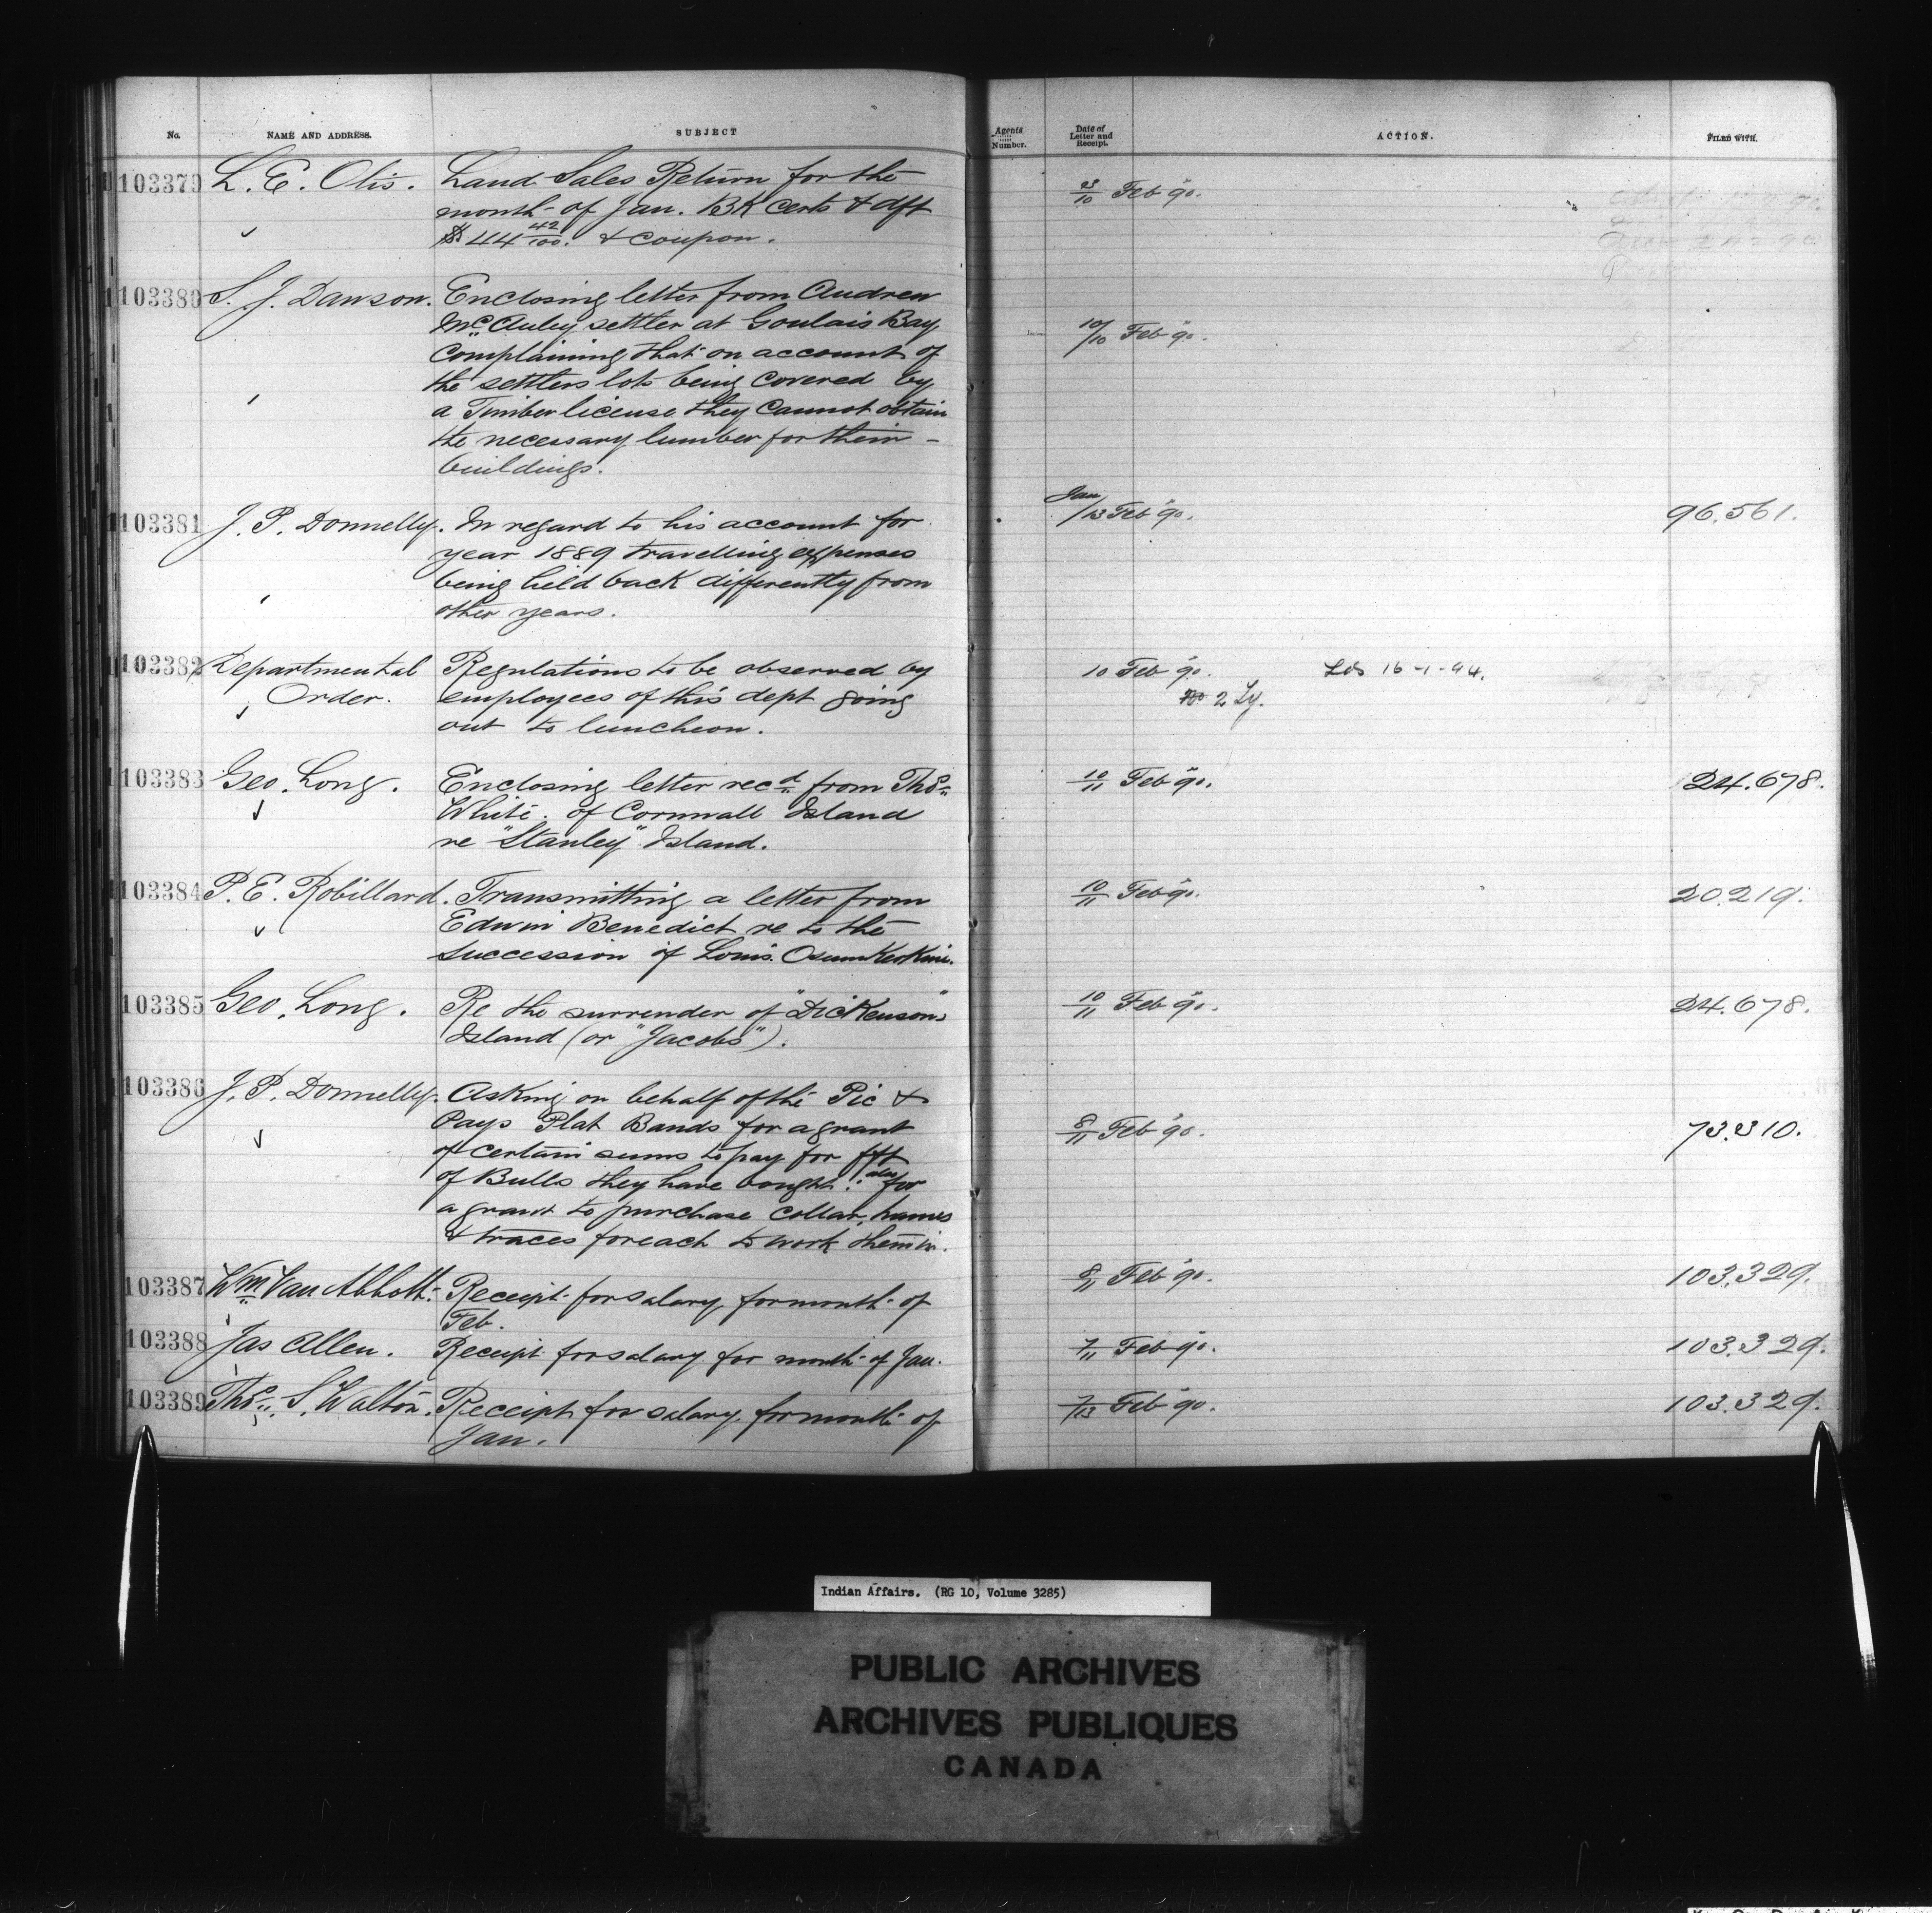 No. NAME AND ADDRESS. SUBJECT Agents Number. Date of Letter and Receipt. ACTION. FILED WITH.
103379 L. E. Otis. Land Sales Return for the
month of Jan. BK certs & dft
$44 42/100. & coupon.
23/10 Feb 90.
103380 S. J. Dawson. Enclosing letter from Andrew
McAuley settler at Goulais Bay
Complaining that on account of
the settlers lots being covered by
a Timber license they cannot obtain
the necessary lumber for their
buildings.
10/10 Feb 90.
103381 J. P. Donnelly. In regard to his account for
year 1889 travelling expenses
being held back differently from
other years.
Jan/13 Feb 90. 96.561.
103382 Departmental Regulations to be observed by
Order. employees of this dept going
out to luncheon.
10 Feb 90. 16-1-94.
2 Ly.
103383 Geo. Long. Enclosing letter recd from Thos
White of Cornwall Island
re "Stanley" Island.
10/11 Feb 90. 24.678.
103384 P. E. Robillard. Transmitting a letter from
Edwin Benedict re to the
succession of Louis
10/11 Feb 90. 20.219.
103385 Geo. Long. Re the surrender of "Dickensons"
Island (or "Jacobs").
10/11 Feb 90. 24.678.
103386 J. P. Donnelly. Asking on behalf of the Pic &
Pays Plat Bands for a grant
of certain sums to pay for fft
of Bulls they have bought: also for
a grant to purchase collar, hames
& traces for each to work them in.
8/11 Feb 90. 73.310.
103387 Wm Van Abbott. Receipt for salary for month of
Feb.
8/11 Feb 90. 103.329.
103388 Jas Allen. Receipt for salary for month of Jan.
7/11 Feb 90. 103.329.
103389 Thos. S. Walton. Receipt for salary for month of
Jan.
7/13 Feb 90. 103.329.
Indian Affairs. (RG 10, Volume 3285)
PUBLIC ARCHIVES
ARCHIVES PUBLIQUES
CANADA